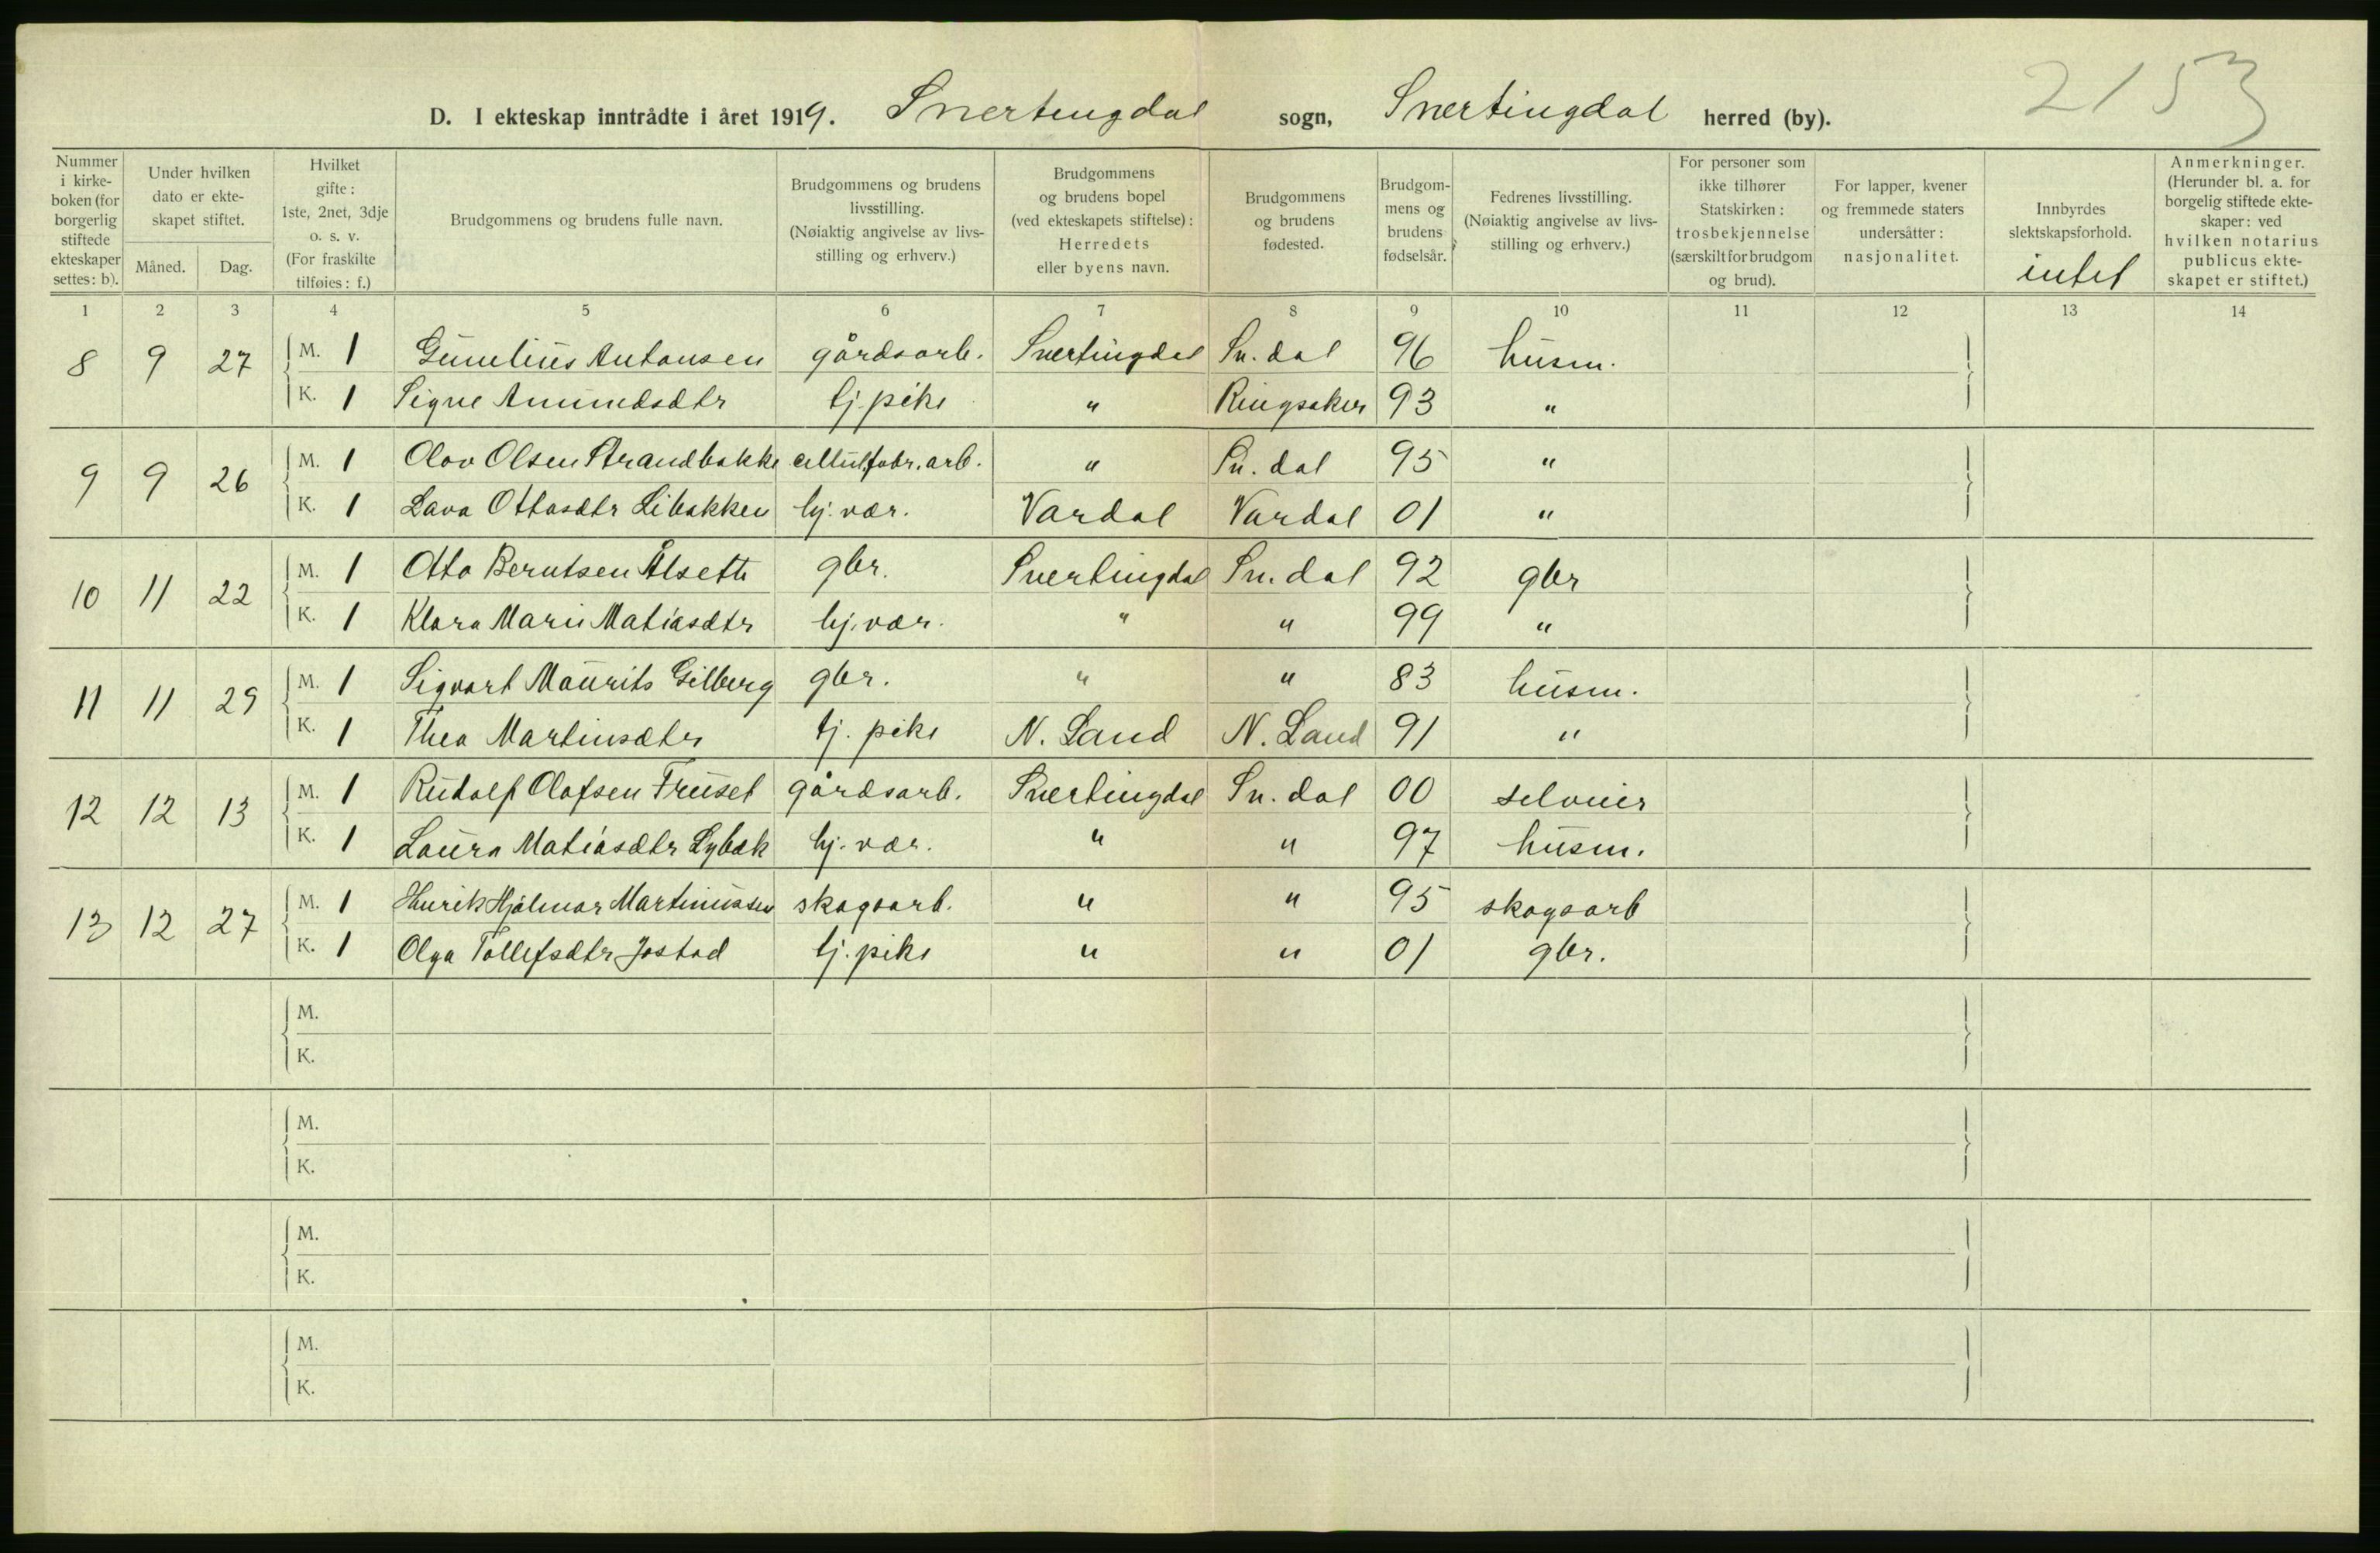 2153
D. I ekteskap inntrådte i året 1919. Snertingdal sogn, Snertingdal herred (by).
Nummer i kirke-boken (for borgerlig stiftede ekteskaper settes: b).
Under hvilken dato er ekte-skapet stiftet.
Måned. Dag.
Hvilket gifte: 1ste, 2net, 3dje o. s. v. (For fraskilte tilføies: f.)
Brudgommens og brudens fulle navn.
Brudgommens og brudens livsstilling. (Nøiaktig angivelse av livs-stilling og erhverv.)
Brudgommens og brudens bopel (ved ekteskapets stiftelse): Herredets eller byens navn.
Brudgommens og brudens fødested.
Brudgom-mens og brudens fødselsår.
Fedrenes livsstilling. (Nøiaktig angivelse av livs-stilling og erhverv.)
For personer som ikke tilhører Statskirken: trosbekjennelse (særskilt for brudgom og brud).
For lapper, kvener og fremmede staters undersåtter: nasjonalitet.
Innbyrdes slektskapsforhold. intet
Anmerkninger. (Herunder bl. a. for borgelig stiftede ekte-skaper: ved hvilken notarius publicus ekte-skapet er stiftet.)
1 2 3 4 5 6 7 8 9 10 11 12 13 14
8 9 27 M. 1 Gunelius Antonsen gårdsarb. Snertingdal Sn. dal 96 husm.
K. 1 Signe Amundsdtr tj. pike " Ringsaker 93 "
9 9 26 M. 1 Olav Olsen Strandbakke cellul.fabr. arb. " Sn. dal 95 "
K. 1 Lava Ottosdtr Libakken hj. vær. Vardal Vardal 01 "
10 11 22 M. 1 Otto Berntsen Ålsette gbr. Snertingdal Sn. dal 92 gbr
K. 1 Klara Marie Matiasdtr hj. vær. " " 99 "
11 11 29 M. 1 Sigvart Maurits Gilberg gbr. " " 83 husm.
K. 1 Thea Martinsdtr tj. pike N. Land N. Land 91 "
12 12 13 M. 1 Rudolf Olafsen Fruset gårdsarb. Snertingdal Sn. dal 00 selveier
K. 1 Laura Matiasdtr Lybæk hj. vær. " " 97 husm.
13 12 27 M. 1 Henrik Hjalmar Martiniussen skogsarb. " " 95 skogsarb
K. 1 Olga Tollefsdtr Jostad tj. pike " " 01 gbr.
M.
K.
M.
K.
M.
K.
M.
K.